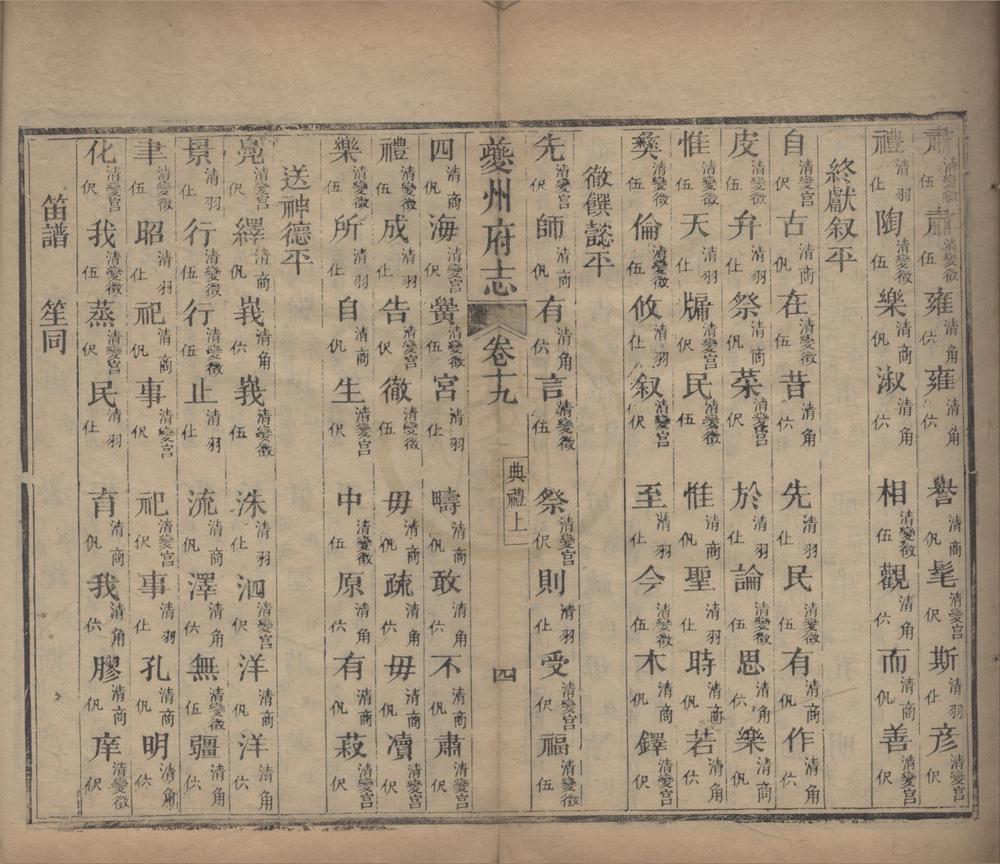 肅清變徵伍肅清變徵伍雍清角𠆾雍清角𠆾譽清商㐽髦清變宮伬斯清羽仩彥清變宮伬
禮清羽仩陶清變徵伍樂清商㐽淑清角𠆾相清變徵伍觀清角𠆾而清商㐽善清變宮伬
終獻叙平
自清變宮伬古清商㐽在清變徵伍昔清角𠆾先清羽仩民清變徵伍有清商㐽作清角𠆾
皮清變徵伍弁清羽仩祭清商㐽菜清變宮伬於清羽仩論清變徵伍思清角𠆾樂清商㐽
惟清變徵伍天清羽仩牖清變宮伬民清變徵伍惟清商㐽聖清羽仩時清商㐽若清角𠆾
彝清變徵伍倫清變徵伍攸清羽仩叙清變宮伬至清羽仩今清變徵伍木清商㐽鐸清變宮伬
徹饌懿平
先清變宮伬師清商㐽有清角𠆾言清變徵伍祭清變宮伬則清羽仩受清變宮伬福清變徵伍
夔州府志 卷十九 典禮上 四
四清商㐽海清變宮伬黌清變徵伍宮清羽仩疇清商㐽敢清角𠆾不清商㐽肅清變宮伬
禮清變徵伍成清羽仩告清變宮伬徹清變徵伍毋清商㐽疏清角𠆾毋清商㐽凟清變宮伬
樂清變徵伍所清羽仩自清商㐽生清變宮伬中清變徵伍原清角𠆾有清商㐽菽清變宮伬
送神德平
鳧清變宮伬繹清商㐽峩清角𠆾峩清變徵伍洙清羽仩泗清變宮伬洋清商㐽洋清角𠆾
景清羽仩行清變徵伍行清變徵伍止清羽仩流清羽仩澤清角𠆾無清變徵伍疆清角𠆾
聿清變徵伍昭清羽仩祀清商㐽事清變宮伬祀清變宮伬事清羽仩孔清商㐽明清角𠆾
化清變宮伬我清變徵伍蒸清變宮伬民清羽仩育清商㐽我清角𠆾膠清商㐽庠清變徵伬
笛譜 笙同